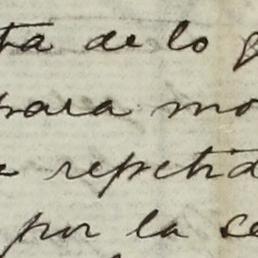 ta de lo
para mo
repetid
por la ce